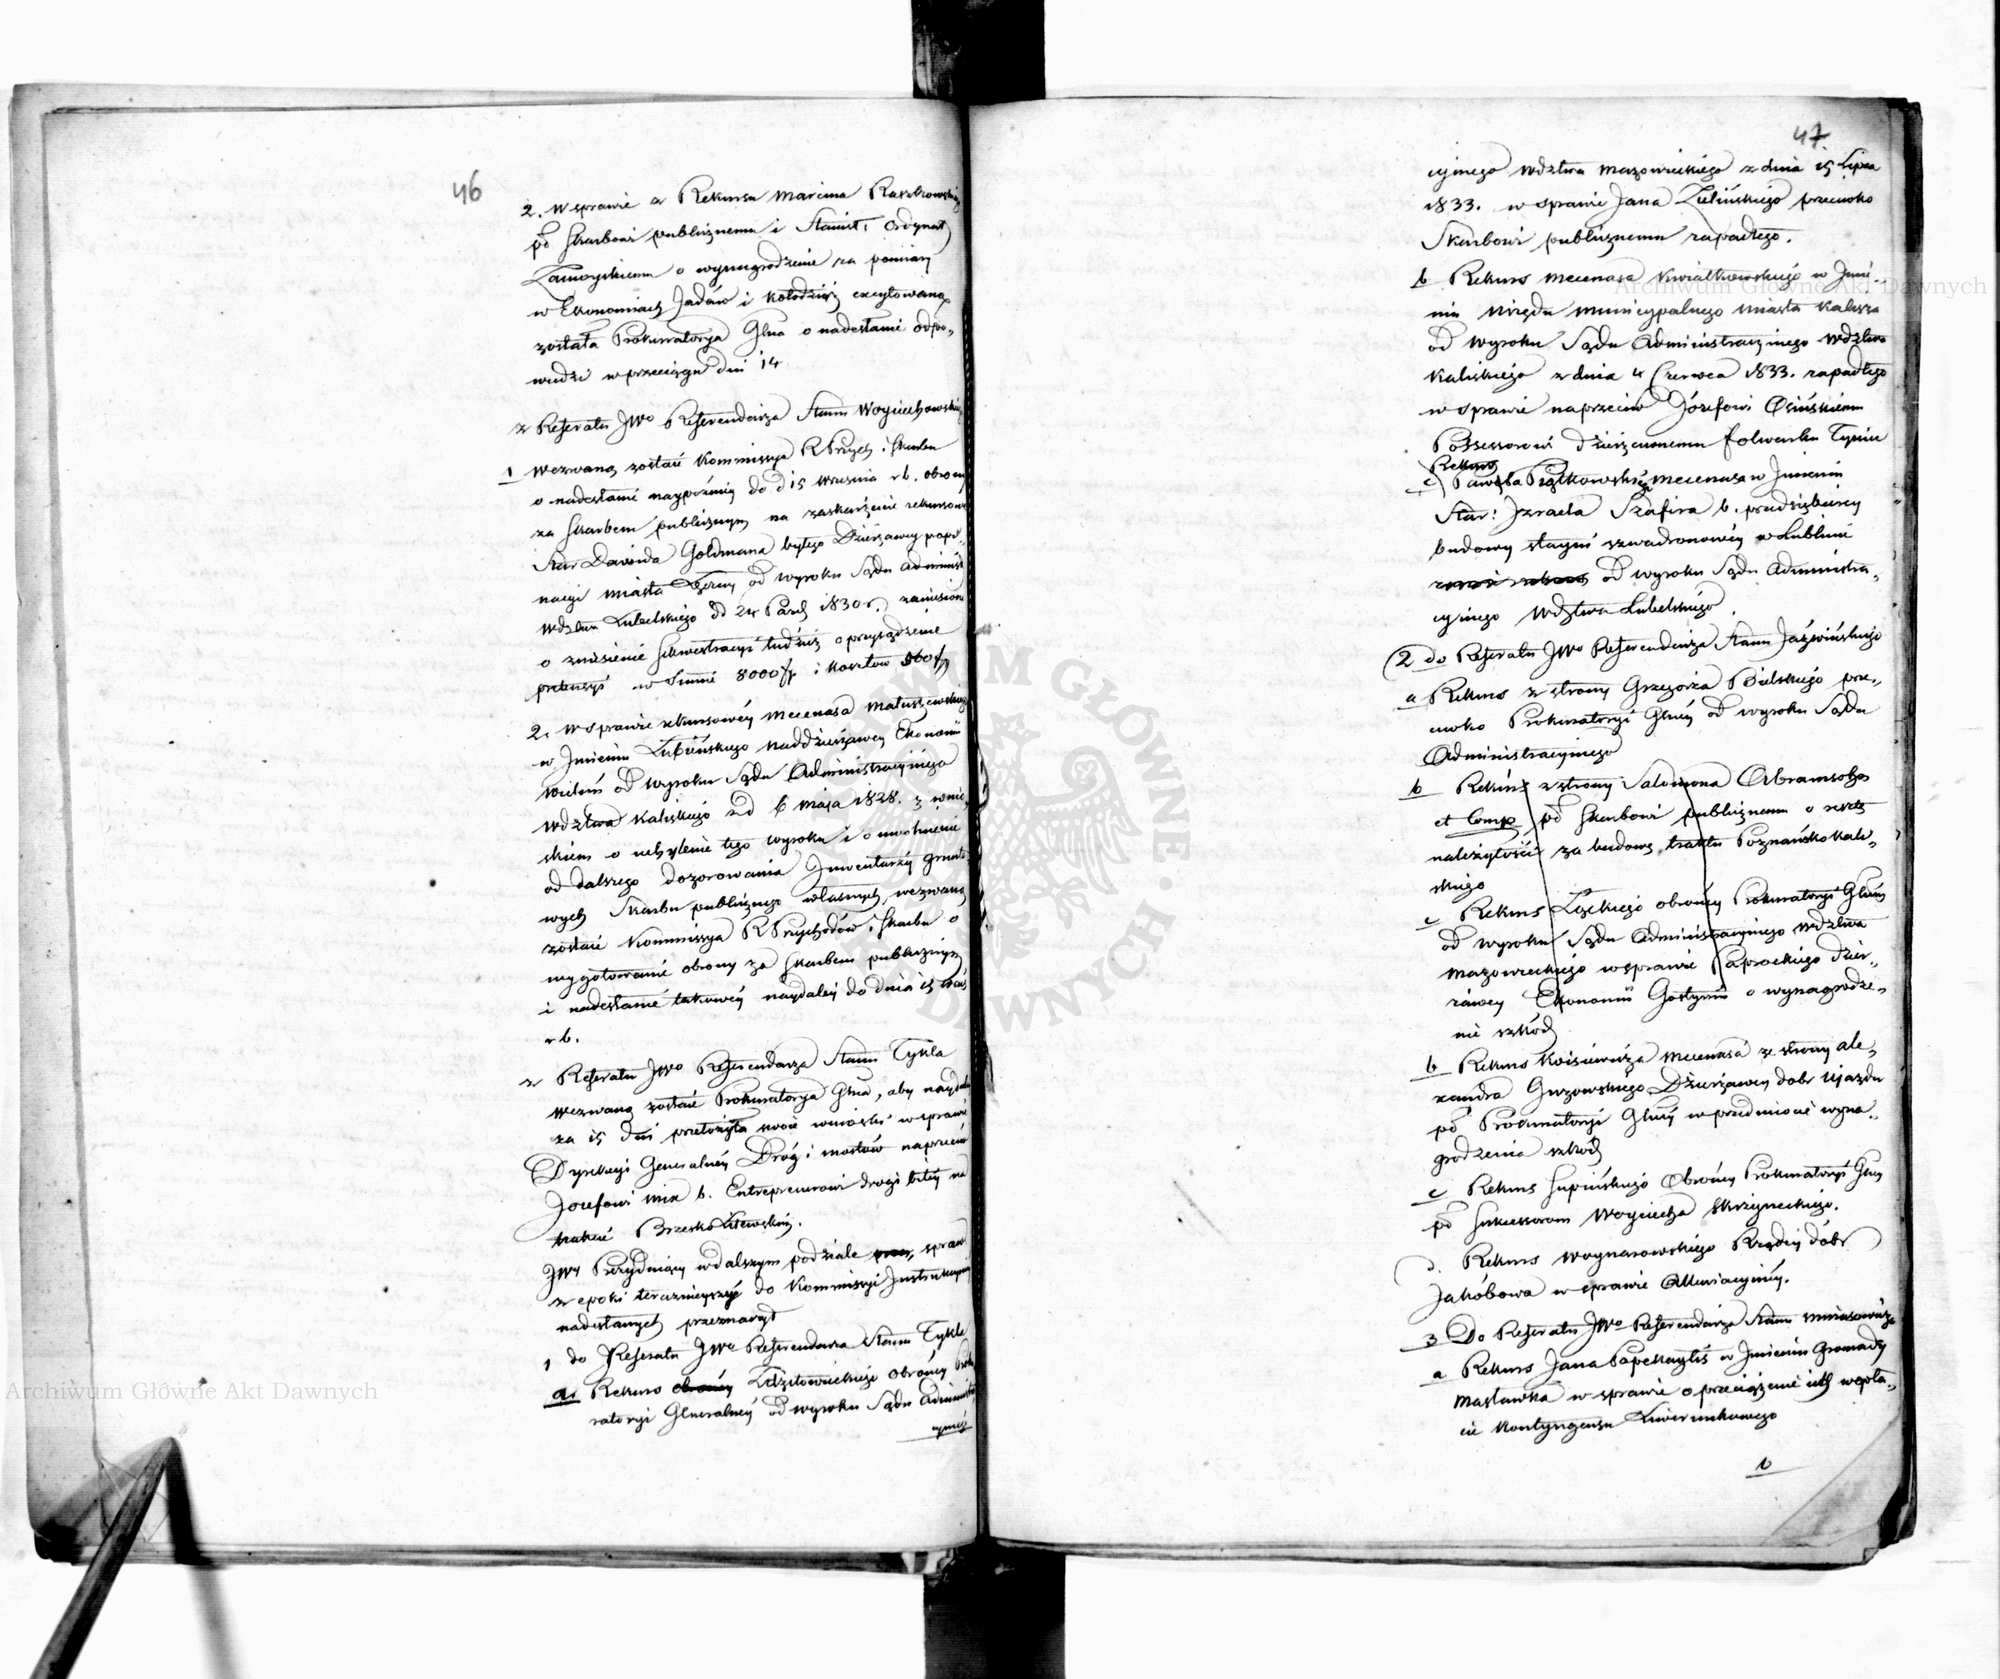 46
2. W sprawie z Rekursu Marcina Raszkowskiego
pō Skarbowi publicznemu i Stanisł: Ordynat
Zamoyskiemu o wynagrodzenie za pomiary
w Ekonomiach Jadów i Kołodziąż excytowaną
została Prokuratorya Glna o nadesłanie odpo„
wiedzi w przeciągu dni 14
z Referatu JWo Referendarza Stanu Woyciechowskiego
1 Wezwaną zostać Kommissya R Przych: i Skarbu
o nadesłanie naypóźniéy do d 15 Września r b. obrony
za Skarbem publicznym na zaskarżenie rekursowe
Star Dawida Goldmana byłego Dzierżawcy propi„
nacyi miasta od wyroku Sądu Administ
Wdztwa Lubelskiego dd 24 Paźd 1830 r. zaniesione
o zniesienie sekwestracyi tudzież o przysądzenie
pretensyi w Summie 8000 f. i kosztów 560 f.
2. W sprawie rekursowéy Mecenasa Matuszewskiego
w Jmieniu Lubińskiego Naddzierżawcy Ekonomii
Wieluń od wyroku Sądu Administracyinego
Wdztwa Kaliskiego z d 6 Maja 1828. z wnio„
skiem o uchylenie tego wyroku i o uwolnienie
od dalszego dozorowania Jnwentarzy grunto„
wych Skarbu publicznego własnych, wezwaną
zostać Kommissya R Przychodów i Skarbu o
wygotowanie obrony za Skarbem publicznym
i nadesłanie takowéy naydaléy do dnia 15 Wrześ
r b.
z Referatu JWo Referendarza Stanu Tykla
Wezwaną zostać Prokuratorya Glna, aby naydaléy
za 15 dni przełożyła swoie wnioski w sprawie
Dyrekcyi Generalnéy Dróg i mostów naprzeciw
Jozefowi Mix b. Entreprenerowi drogi bitéy na
trakcie Brzesko Litewskim.
JWy Prezyduiący w dalszym podziale spraw
z epoki teraznieyszéy do Kommissyi Jnstrukcyinéy
nadesłanych przeznaczył
1 do Referatu JWo Referendarza Stanu Tykla
a. Rekurs obrońcy Zdzitowieckiego obrońcy Proku
ratoryi Generalnéy od wyroku Sądu Administra
cyinéy
47
cyinego Wdztwa Mazowieckiego z dnia 15 Lipca
1833. w sprawie Jana Zielińskiego przeciwko
Skarbowi publicznemu zapadłego.
b Rekurs Mecenasa Kwiatkowskiego w Jmie„
niu Urzędu Municypalnego Miasta Kalisza
od wyroku Sądu Administracyinego Wdztwa
Kaliskiego z dnia 4 Czerwca 1833. zapadłego
w sprawie naprzeciw Józefowi Osińskiemu
Possessorowi dzierżawnemu folwarku Tyniec
Rekurs
c) Pawła Piątkowskiego Mecenasa w Jmieniu
Star: Jzraela Szafira b. przedsiębiercy
budowy stayni szwadronowéy w Lublinie
od wyroku Sądu Administra„
cyinego Wdztwa Lubelskiego.
2 do Referatu JWo Referendarza Stanu Jaźwińskiego
a Rekurs z strony Grzegorza Bielskiego prze„
ciwko Prokuratoryi Glnéy od wyroku Sądu
Administracyinego
b Rekurs z strony Salomona Abramsohn
et Comp pō Skarbowi publicznemu o resztę
należytości za budowę traktu Poznańsko Kali„
skiego
c Rekurs Łąckiego obrońcy Prokuratoryi Glnéy
od wyroku Sądu Administracyinego Wdztwa
Mazowieckiego w sprawie Paprockiego Dzier„
żawcy Ekonomii Gostynin o wynagrodze„
nie szkód
b Rekurs Mecenasa ze strony Ale„
xandra Gurzowskiego Dzierżawcy dobr Ujazdu
pō Prokuratoryi Glnéy w przedmiocie wyna„
grodzenia szkód
c Rekurs Supińskiego Obrońcy Prokuratoryi Glnéy
pō Sukcessorom Woyciecha Skrzyneckiego.
d. Rekurs Woynarowskiego Rządcy dóbr
Jakóbowa w sprawie Alluwiacyinéy.
3 Do Referatu JWo Referendarza Stanu
a Rekurs Jana w Jmieniu Gromady
Masławka w sprawie o przeciążenie ich wopła„
cie kontyngensu Liwerunkowego
b
Archiwum Główne Akt Dawnych
Archiwum Główne Akt Dawnych
ARCHIWUM GŁÓWNE AKT DAWNYCH